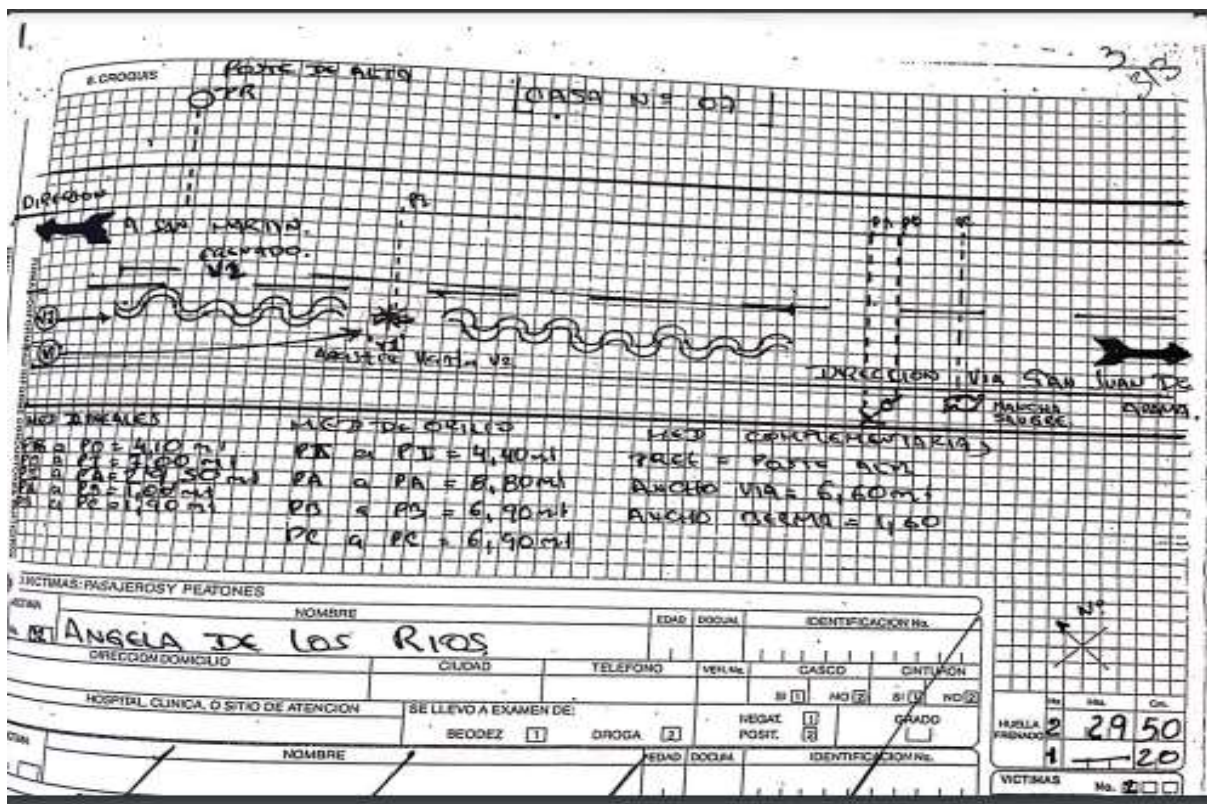 1.
3
313
6. CROQUIS
POSTE DE ALTA
PR
CASA Nº 07
DIRECCION
A SAN MARTIN.
FRENADO.
V2
V2
V1
V2
DIRECCION VIA SAN JUAN DE
ARAMA.
MANCHA
SANGRE.
MED LINEALES
MED DE ORILLO
MED COMPLEMENTARIAS
PD = 4,10 mt
= 1,00 mt
a PC = 1,90 mt
a PI = 4,40 mt
PA a PA = 8,80 mt
PB a PB = 6,90 mt
PC a PC = 6,90 mt
PREF = POSTE ALTA
ANCHO VIA = 6,60 mt
ANCHO BERMA = 1,60
VICTIMAS: PASAJEROS Y PEATONES
NOMBRE
EDAD
DOCUM.
IDENTIFICACION No.
ANGELA DE LOS RIOS
DIRECCION DOMICILIO
CIUDAD
TELEFONO
VEH. No.
CASCO
CINTURON
SI 1 NO 2 SI 1 NO 2
HOSPITAL, CLINICA, O SITIO DE ATENCION
SE LLEVO A EXAMEN DE:
BEODEZ 1 DROGA 2
NEGAT. 1
POSIT. 2
GRADO
NOMBRE
EDAD
DOCUM.
IDENTIFICACION No.
Nº
No. Mts. Cm.
HUELLA
FRENADO
2 29 50
1 20
VICTIMAS No. 2